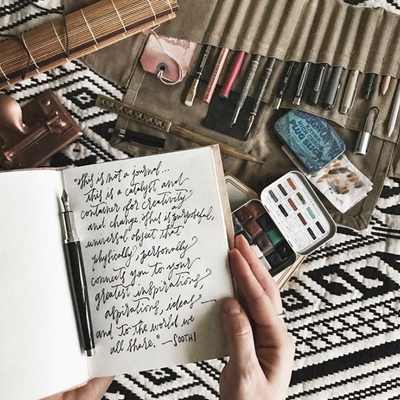 "This is not a journal...
this is a catalyst and
container for creativity
and change. This is purposeful,
universal object that
physically, personally
connects you to your
greatest inspirations,
aspirations, ideas
and to the world we
all share." — SOOTHI